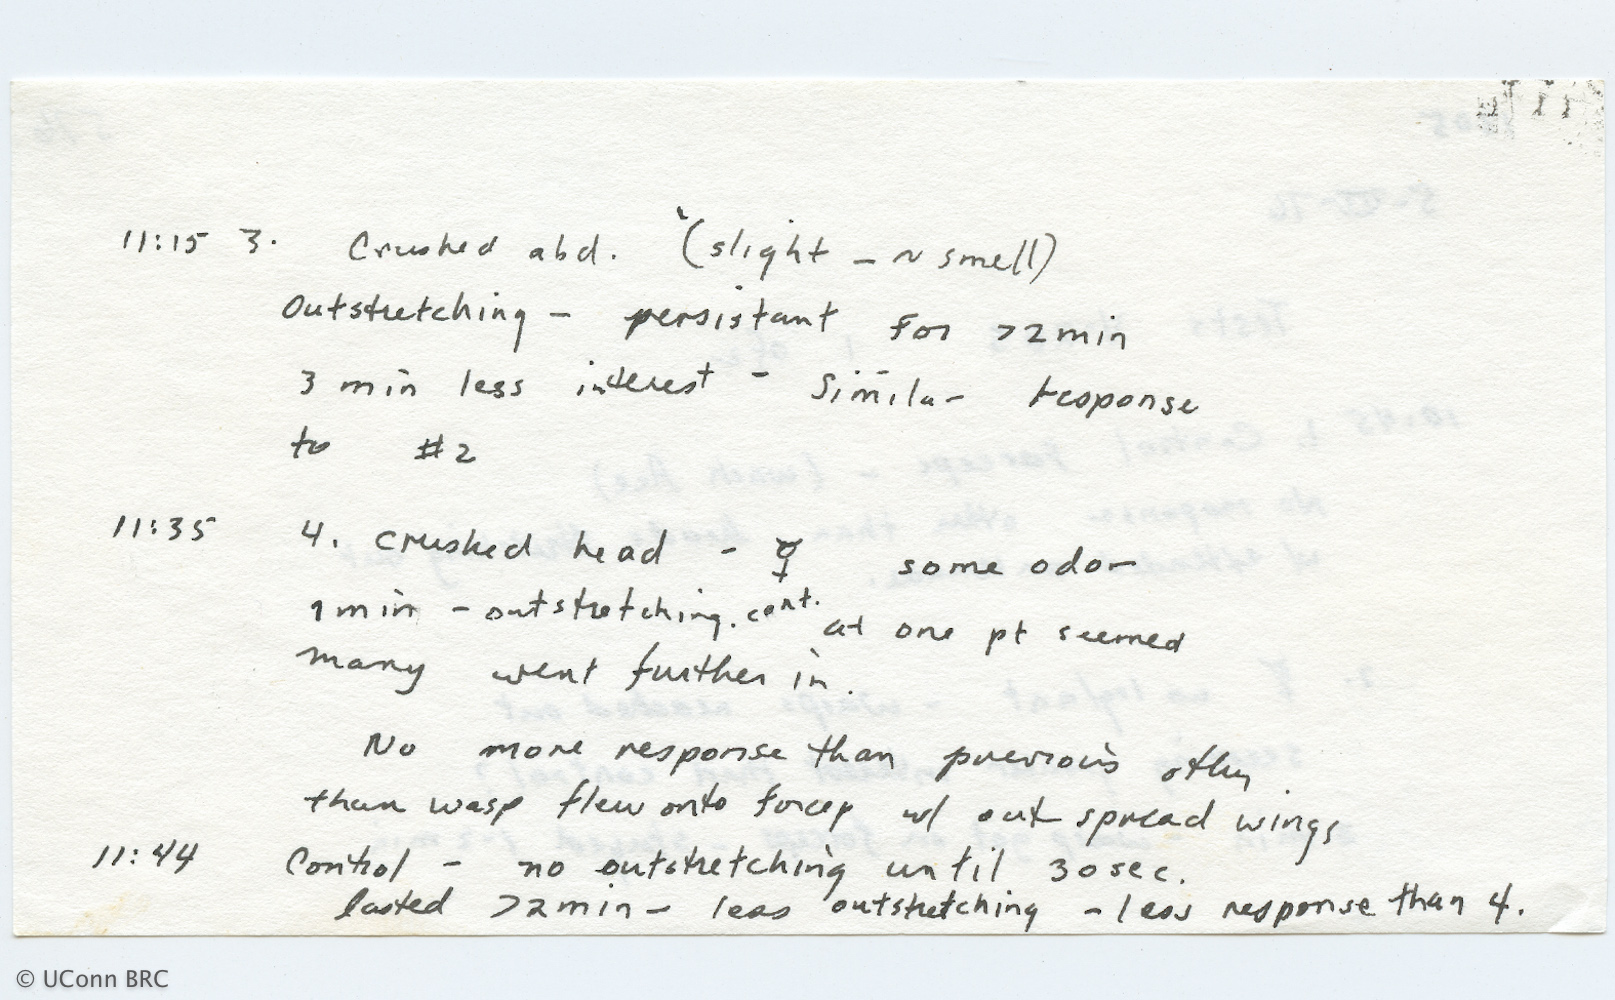 11:15 3. Crushed abd. "(slight - ~ smell)
Outstretching - persistant for >2min
3 min less interest - Similar response
to #2
11:35 4. crushed head - ☿ some odor
1 min - outstretching. cont. at one pt seemed
many went further in.
No more response than previous other
than wasp flew onto forcep w/ out spread wings
11:44 Control - no outstretching until 30sec.
lasted >2min - less outstretching - less response than 4.
© UConn BRC